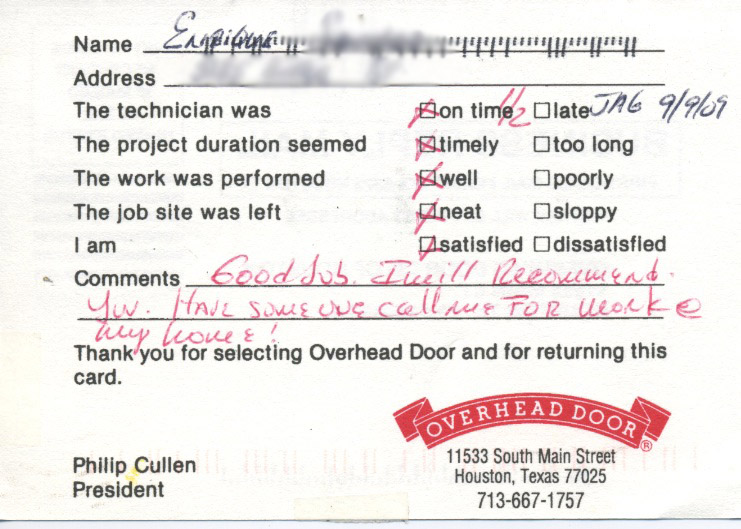 Name Enrique
Address
The technician was on time 1/2 late JAG 9/9/09
The project duration seemed timely too long
The work was performed well poorly
The job site was left neat sloppy
I am satisfied dissatisfied
Comments Good Job. I will Recommend.
You. Have someone call me FOR work @
my home!
Thank you for selecting Overhead Door and for returning this
card.
OVERHEAD DOOR ®
Philip Cullen
President
11533 South Main Street
Houston, Texas 77025
713-667-1757